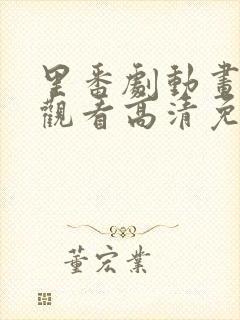 里番劇動畫
觀看高清免
董宏業